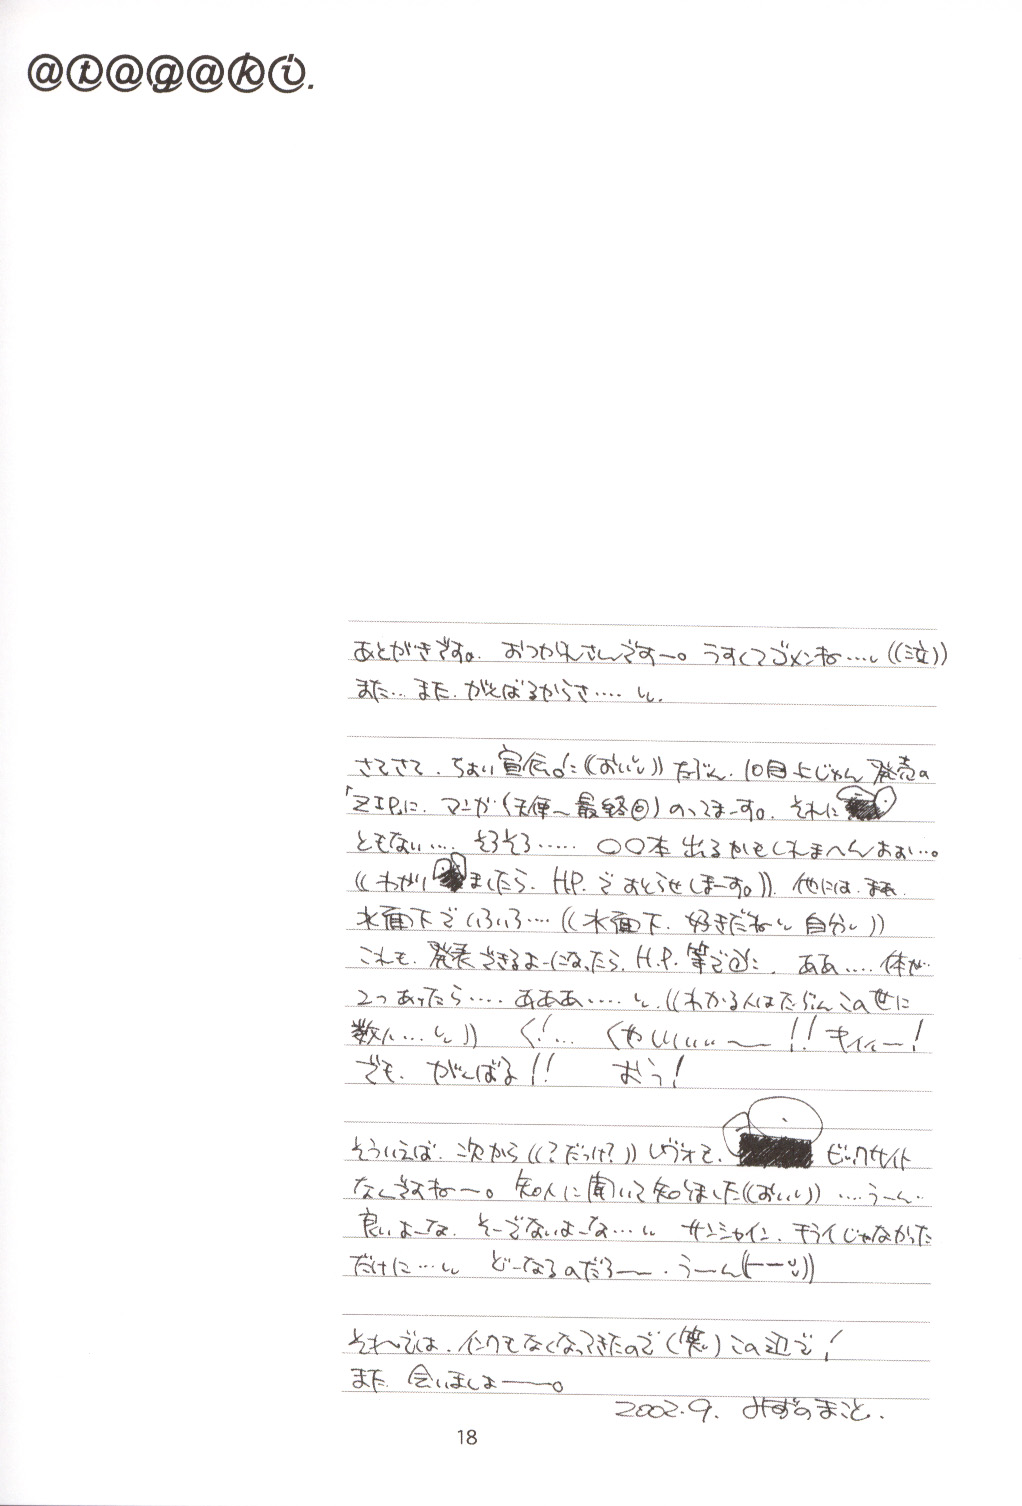 @t@g@ki.
あとがきです。おつかれさんですー。うすくてゴメンね…。((泣))
また…また、がんばるからさ……。
さてさて、ちょい宣伝に((おいい))たぶん、10月上じゅん発売の
「ZIP」に、マンガ(天使〜最終回)のってまーす。それに
ともない……そろそろ……〇〇本出るかもしれまへんおぉ…。
((わかりましたら、H.P.でおしらせしまーす。))他には、まぁ、
水面下でいろいろ…((水面下、好きだねい自分い))
これも、発表できるよーになったら、H.P.等でに、ああ……体が
2つあったら……あああ……。((わかる人はたぶんこの世に
数人…))く!…くやしいぃぃ〜ー!!キイィー!
でも、がんばる!!おぅ!
そういえば、次から((?だっけ?))レヴォて、ビックサイト
なんですねー。知人に聞いて知りました((おいい))……うーん…
良いよーな、そーでないよーな…サンシャイン、キライじゃなかった
だけに…どーなるのだろー。うーん
それでは、インクもなくなってきたので(笑)この辺で!
また、会いましょー。
2002.9. みずのまこと.
18